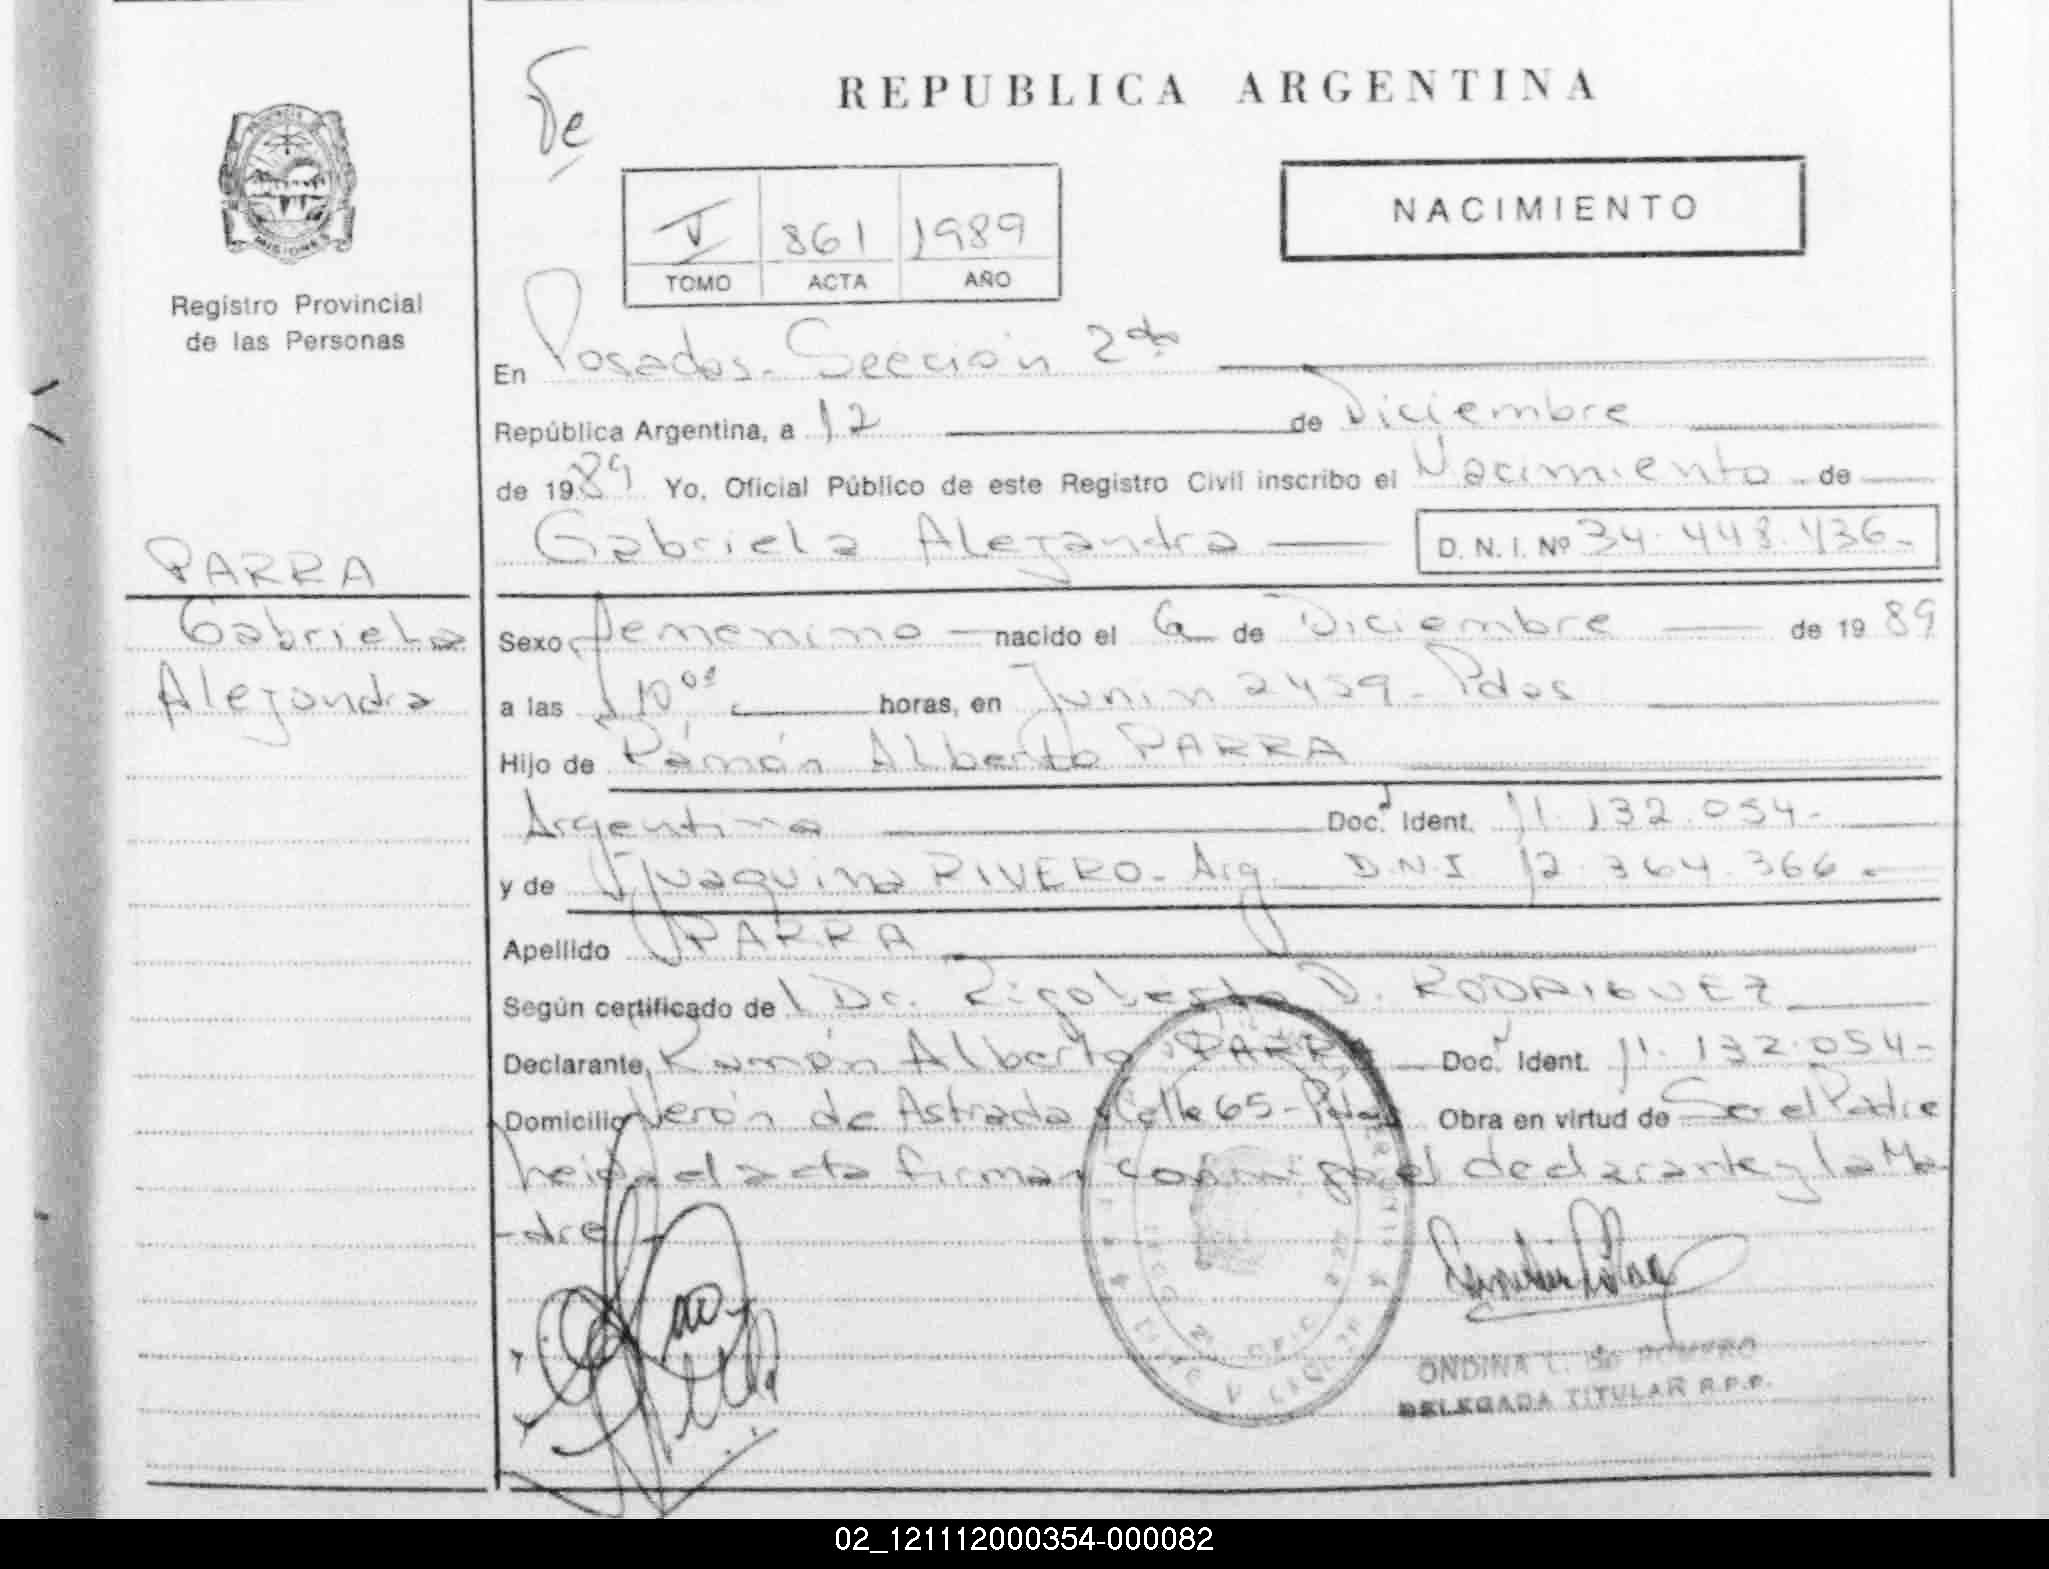 Te
REPUBLICA ARGENTINA
V 861 1989
TOMO ACTA AÑO
NACIMIENTO
MISIONES
Registro Provincial
de las Personas
En Posadas. Sección 2da
República Argentina, a 12 de Diciembre
de 1989 Yo, Oficial Público de este Registro Civil inscribo el Nacimiento de
Gabriela Alejandra D. N. I. Nº 34.448.436-
PARRA
Gabriela
Alejandra
Sexo femenino nacido el 6 de Diciembre de 19 89
a las 10 horas, en Junin 2459- Pdas
Hijo de Ramón Alberto PARRA
Argentino Doc. Ident. 11.132.054-
y de Juaquina RIVERO- Arg. D.N.I 12.364.366
Apellido PARRA
Según certificado de Dr. Rigoberto D. RODRIGUEZ
Declarante, Ramón Alberto PARRA Doc. Ident. 11.132.054-
Domicilio Verón de Astrada y Calle 65- Pdas Obra en virtud de Ser el Padre
Leida el acta firman conmigo el declarante y la Ma
-dre-
ONDINA L. DE ROMERO
DELEGADA TITULAR R.P.P.
02_121112000354-000082